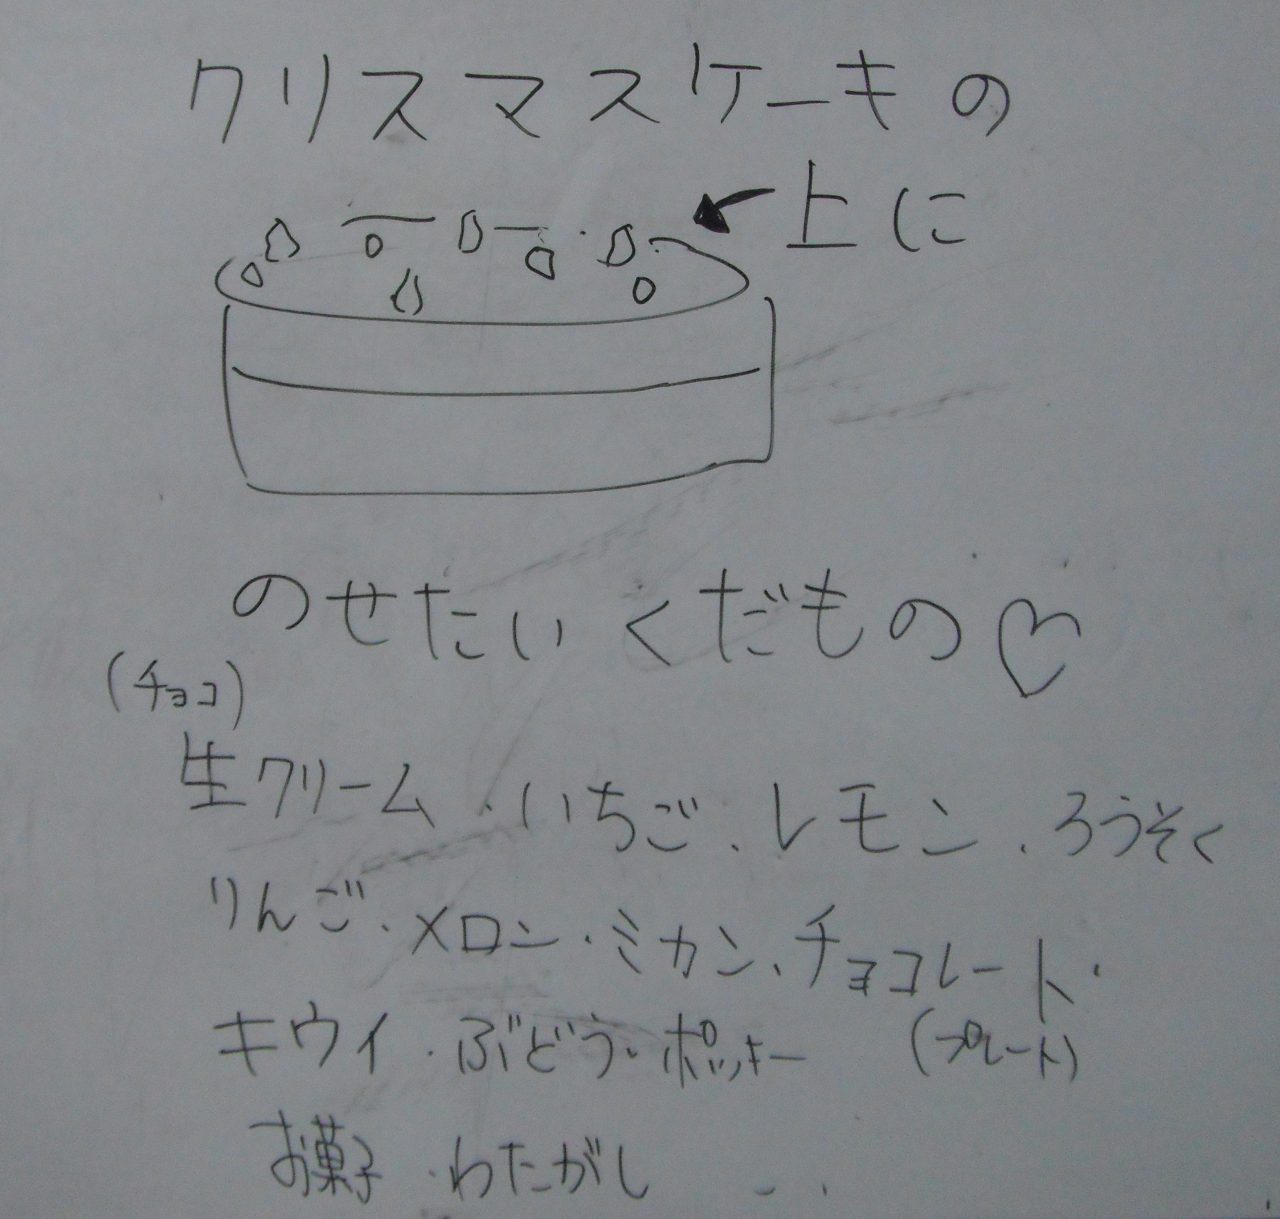 クリスマスケーキの
上に
のせたいくだもの♡
(チョコ)
生クリーム・いちご、レモン、ろうそく
りんご、メロン・ミカン、チョコレート・
(プレート)
キウイ・ぶどう・ポッキー
お菓子・わたがし ・・・